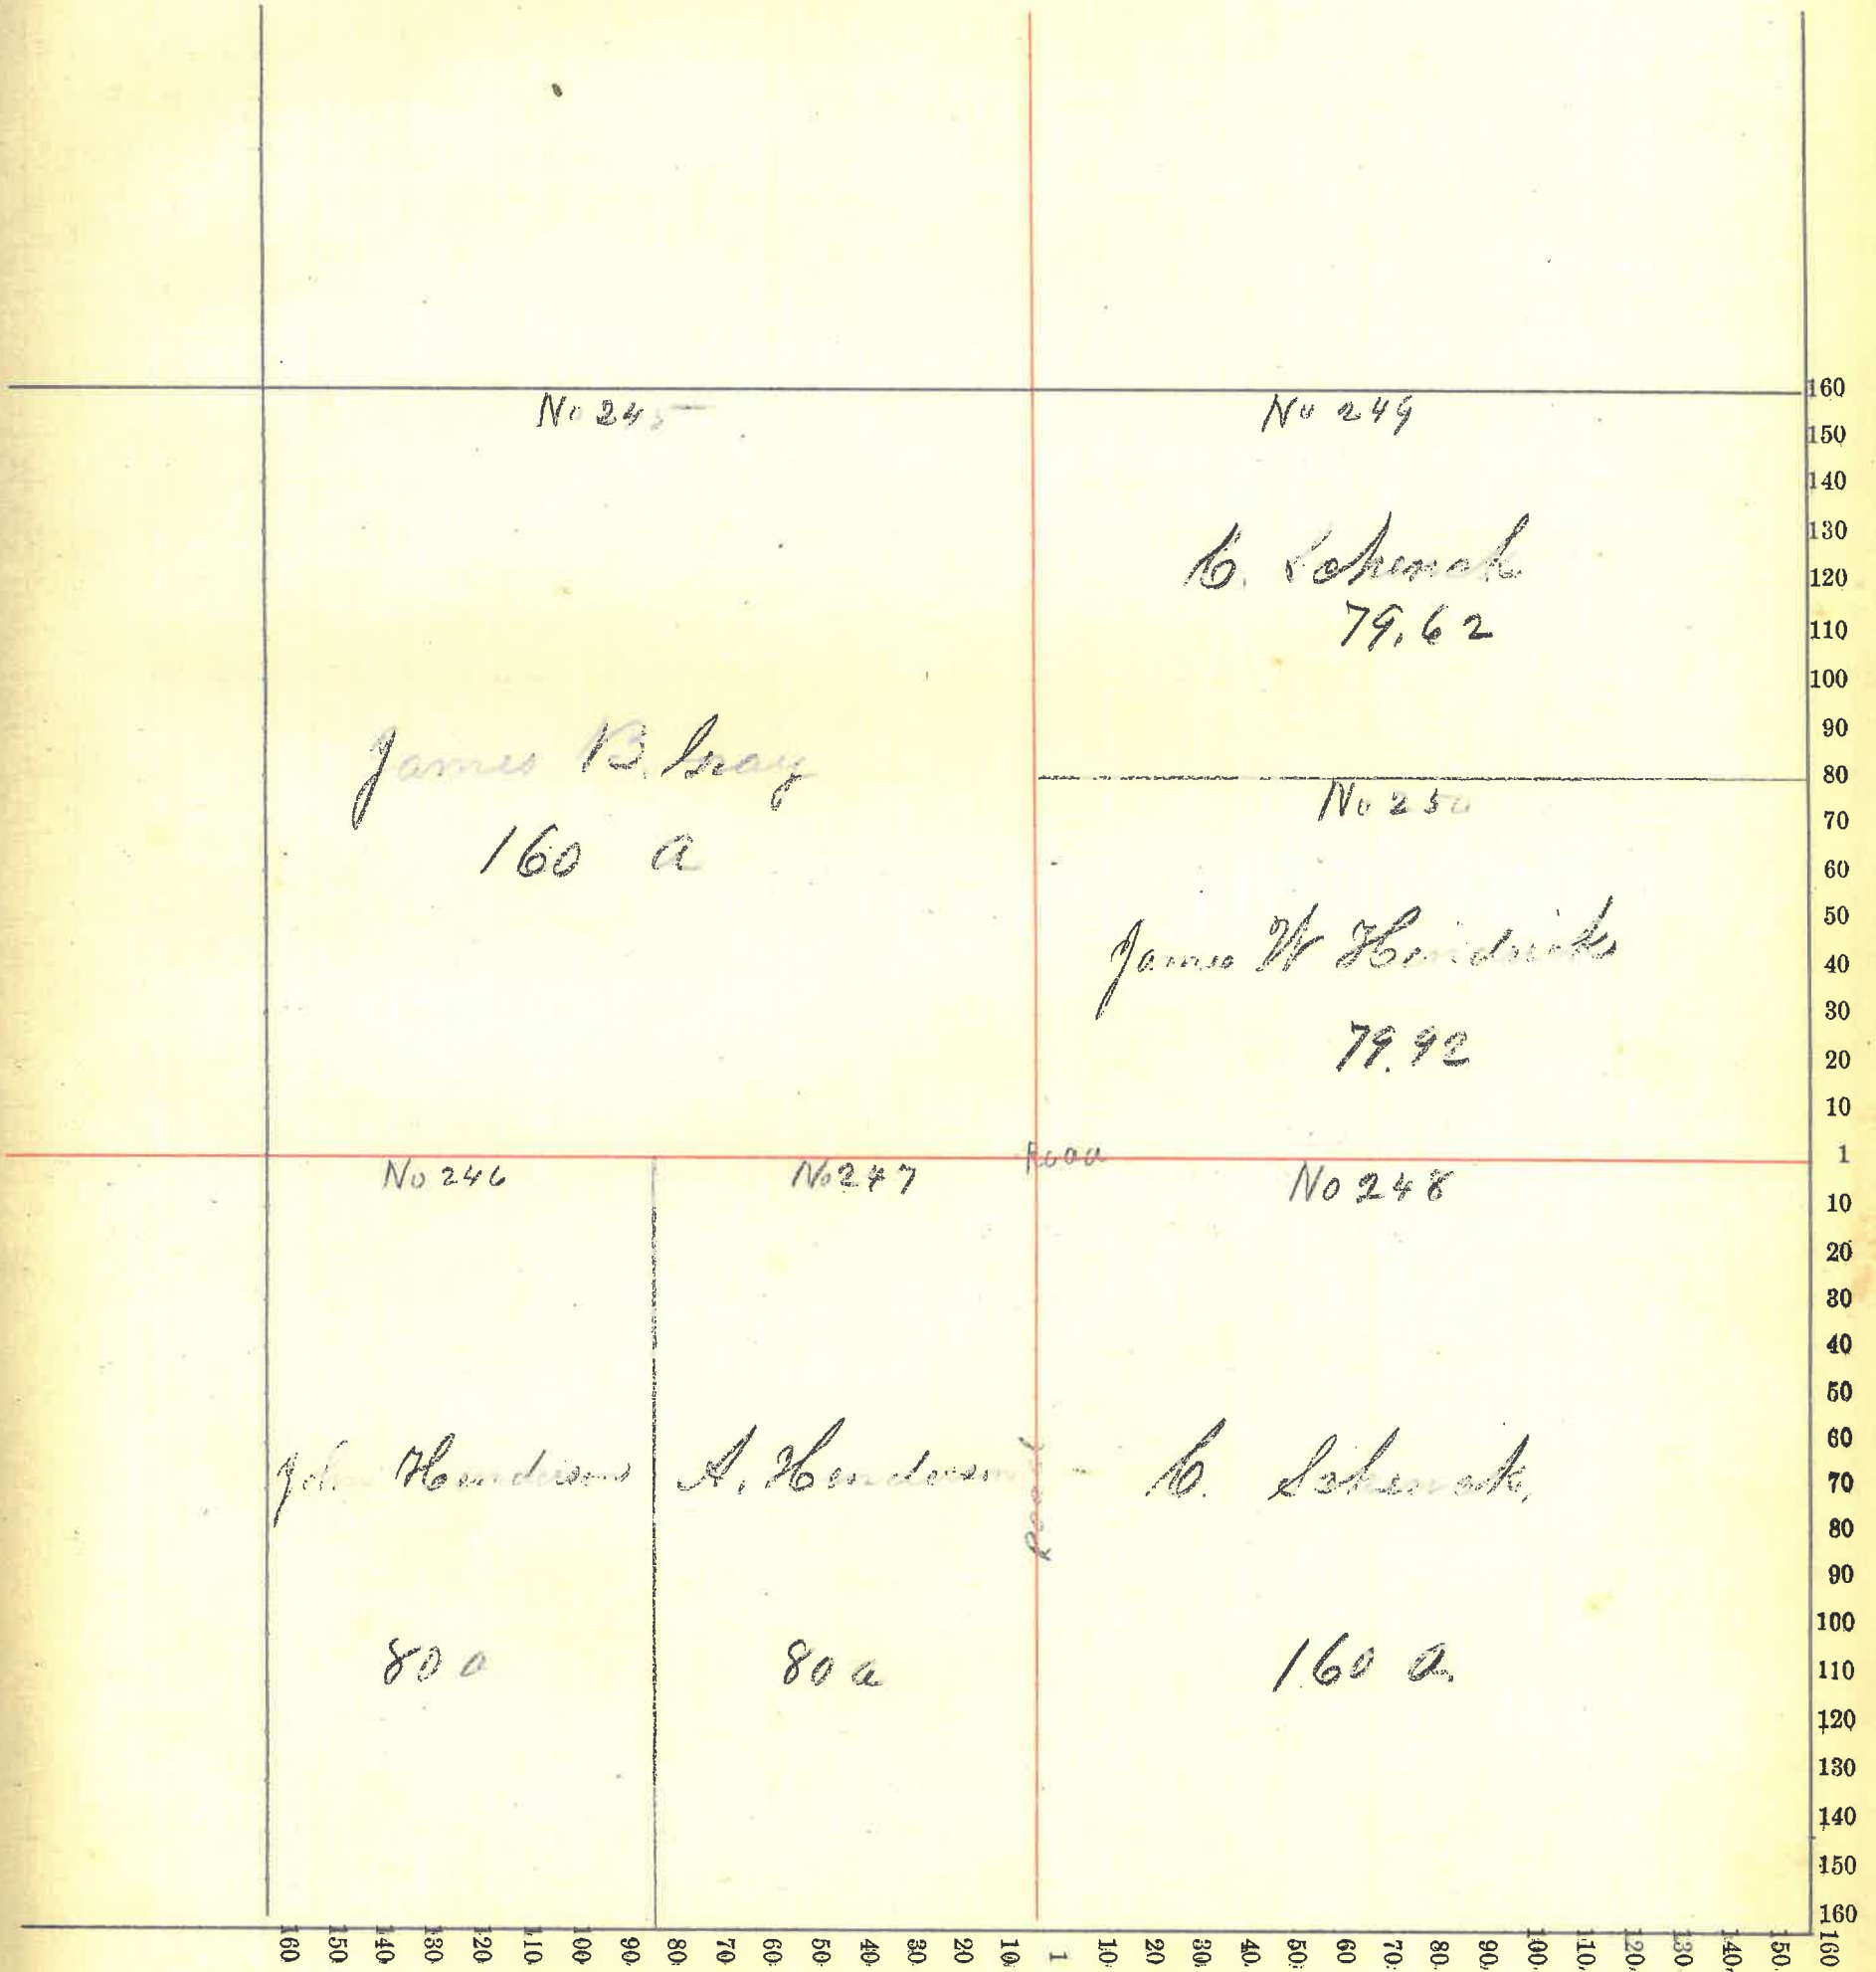 No 245
James B. Gray
160 a
No 249
C. Schenck
79.62
No 250
James W Hendricks
79.92
Road
No 246
John Henderson
80 a
No 247
A. Henderson
80 a
Road
No 248
C. Schenck,
160 a.
160
150
140
130
120
110
100
90
80
70
60
50
40
30
20
10
1
10
20
30
40
50
60
70
80
90
100
110
120
130
140
150
160
160 150 140 130 120 110 100 90 80 70 60 50 40 30 20 10 1 10 20 30 40 50 60 70 80 90 100 110 120 130 140 150 160